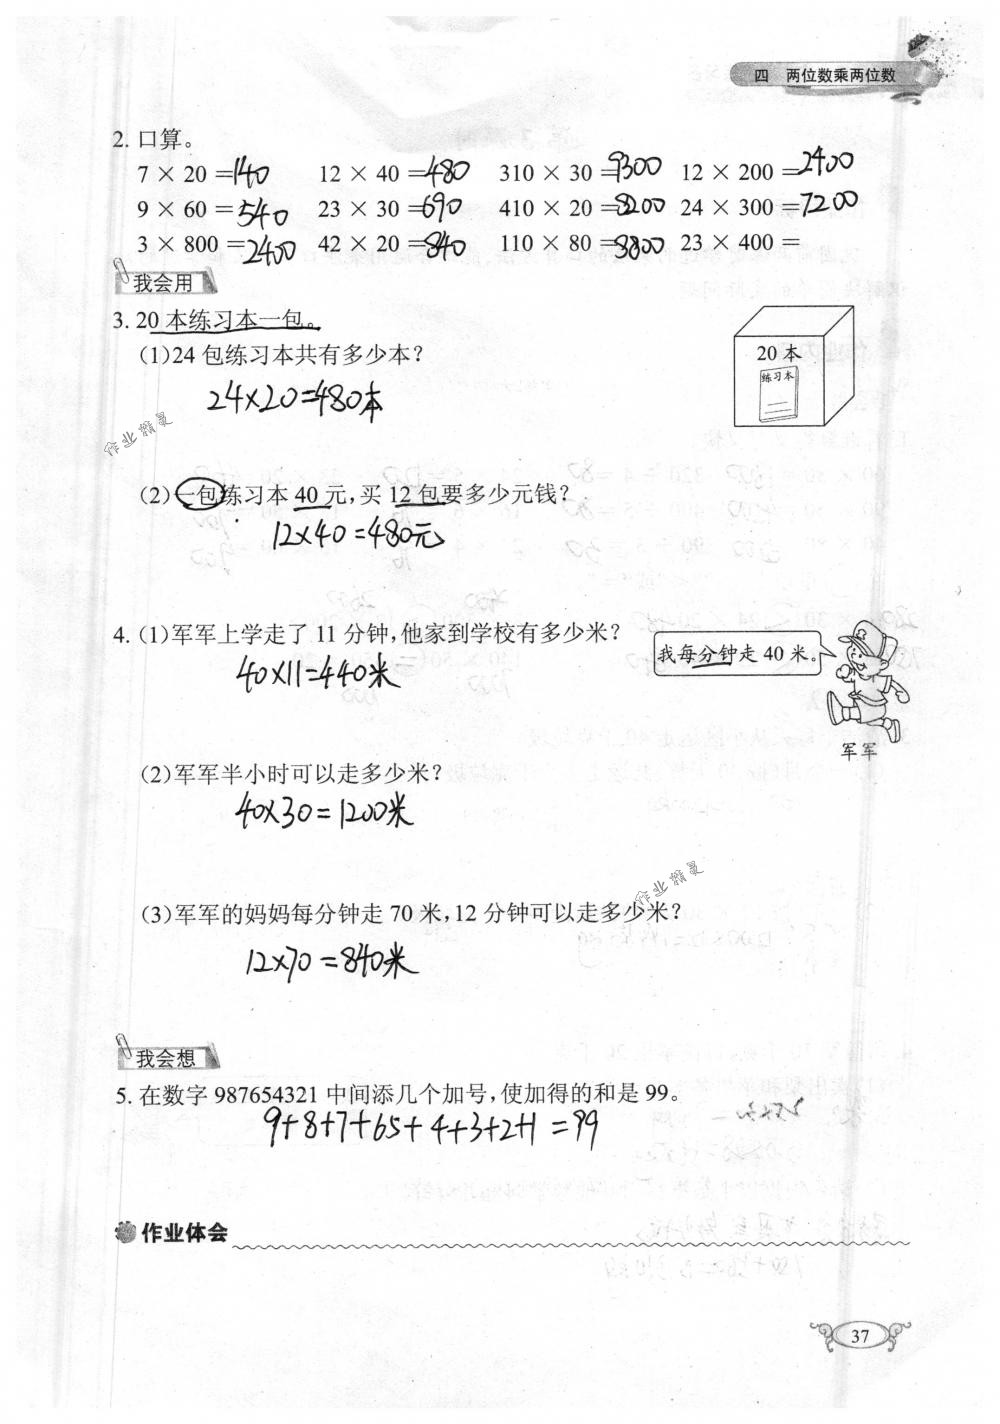 四 两位数乘两位数
2. 口算。
7 × 20 = 140 12 × 40 = 480 310 × 30 = 9300 12 × 200 = 2400
9 × 60 = 540 23 × 30 = 690 410 × 20 = 8200 24 × 300 = 7200
3 × 800 = 2400 42 × 20 = 840 110 × 80 = 8800 23 × 400 =
我会用
3. 20 本练习本一包。
(1)24 包练习本共有多少本?
20 本
练习本
24×20=480本
作业精灵
(2)一包练习本 40 元,买 12 包要多少元钱?
12×40=480元
4. (1)军军上学走了 11 分钟,他家到学校有多少米?
我每分钟走 40 米。
40×11=440米
军军
(2)军军半小时可以走多少米?
40×30=1200米
作业精灵
(3)军军的妈妈每分钟走 70 米,12 分钟可以走多少米?
12×70=840米
我会想
5. 在数字 987654321 中间添几个加号,使加得的和是 99。
9+8+7+65+4+3+2+1=99
作业体会
37